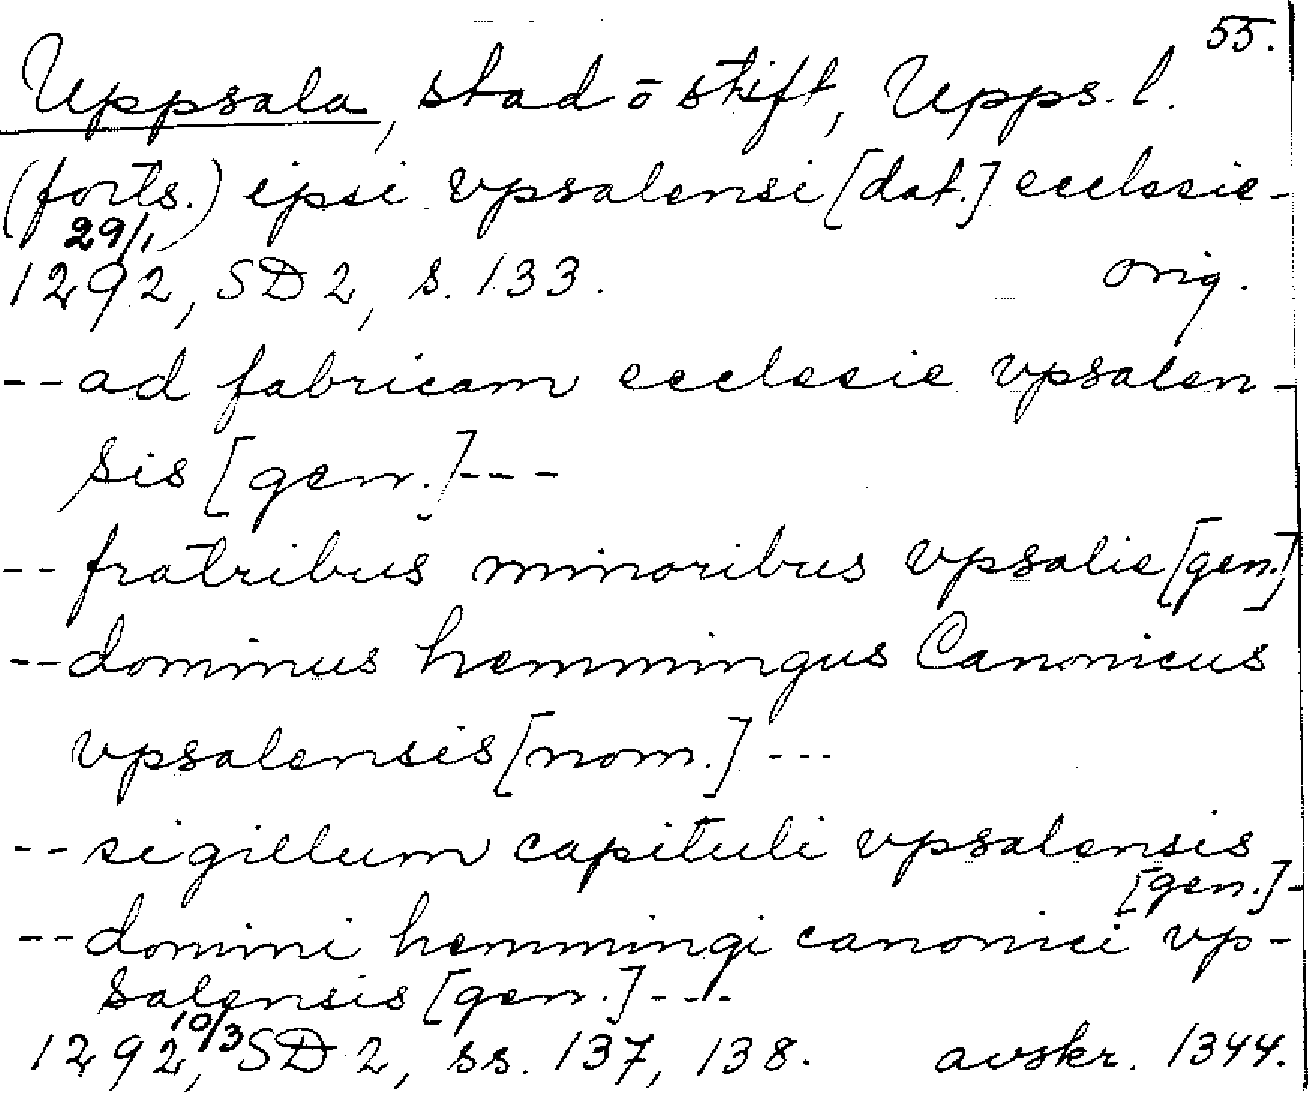 55.
Uppsala, stad o stift, Upps. l.
(forts.) ipsi vpsalensi [dat.] ecclesie-
29/1
1292, SD 2, s. 133. orig.
-- ad fabricam ecclesie vpsalen-
sis [gen.] ---
-- fratribus minoribus vpsalie [gen.]
-- dominus hemmingus Canonicus
vpsalensis [nom.] ---
-- sigillum capituli vpsalensis
[gen.]-
-- domini hemmingi canonici vp-
salensis [gen.] ---
10/3
1292, SD 2, ss. 137, 138. avskr. 1344.